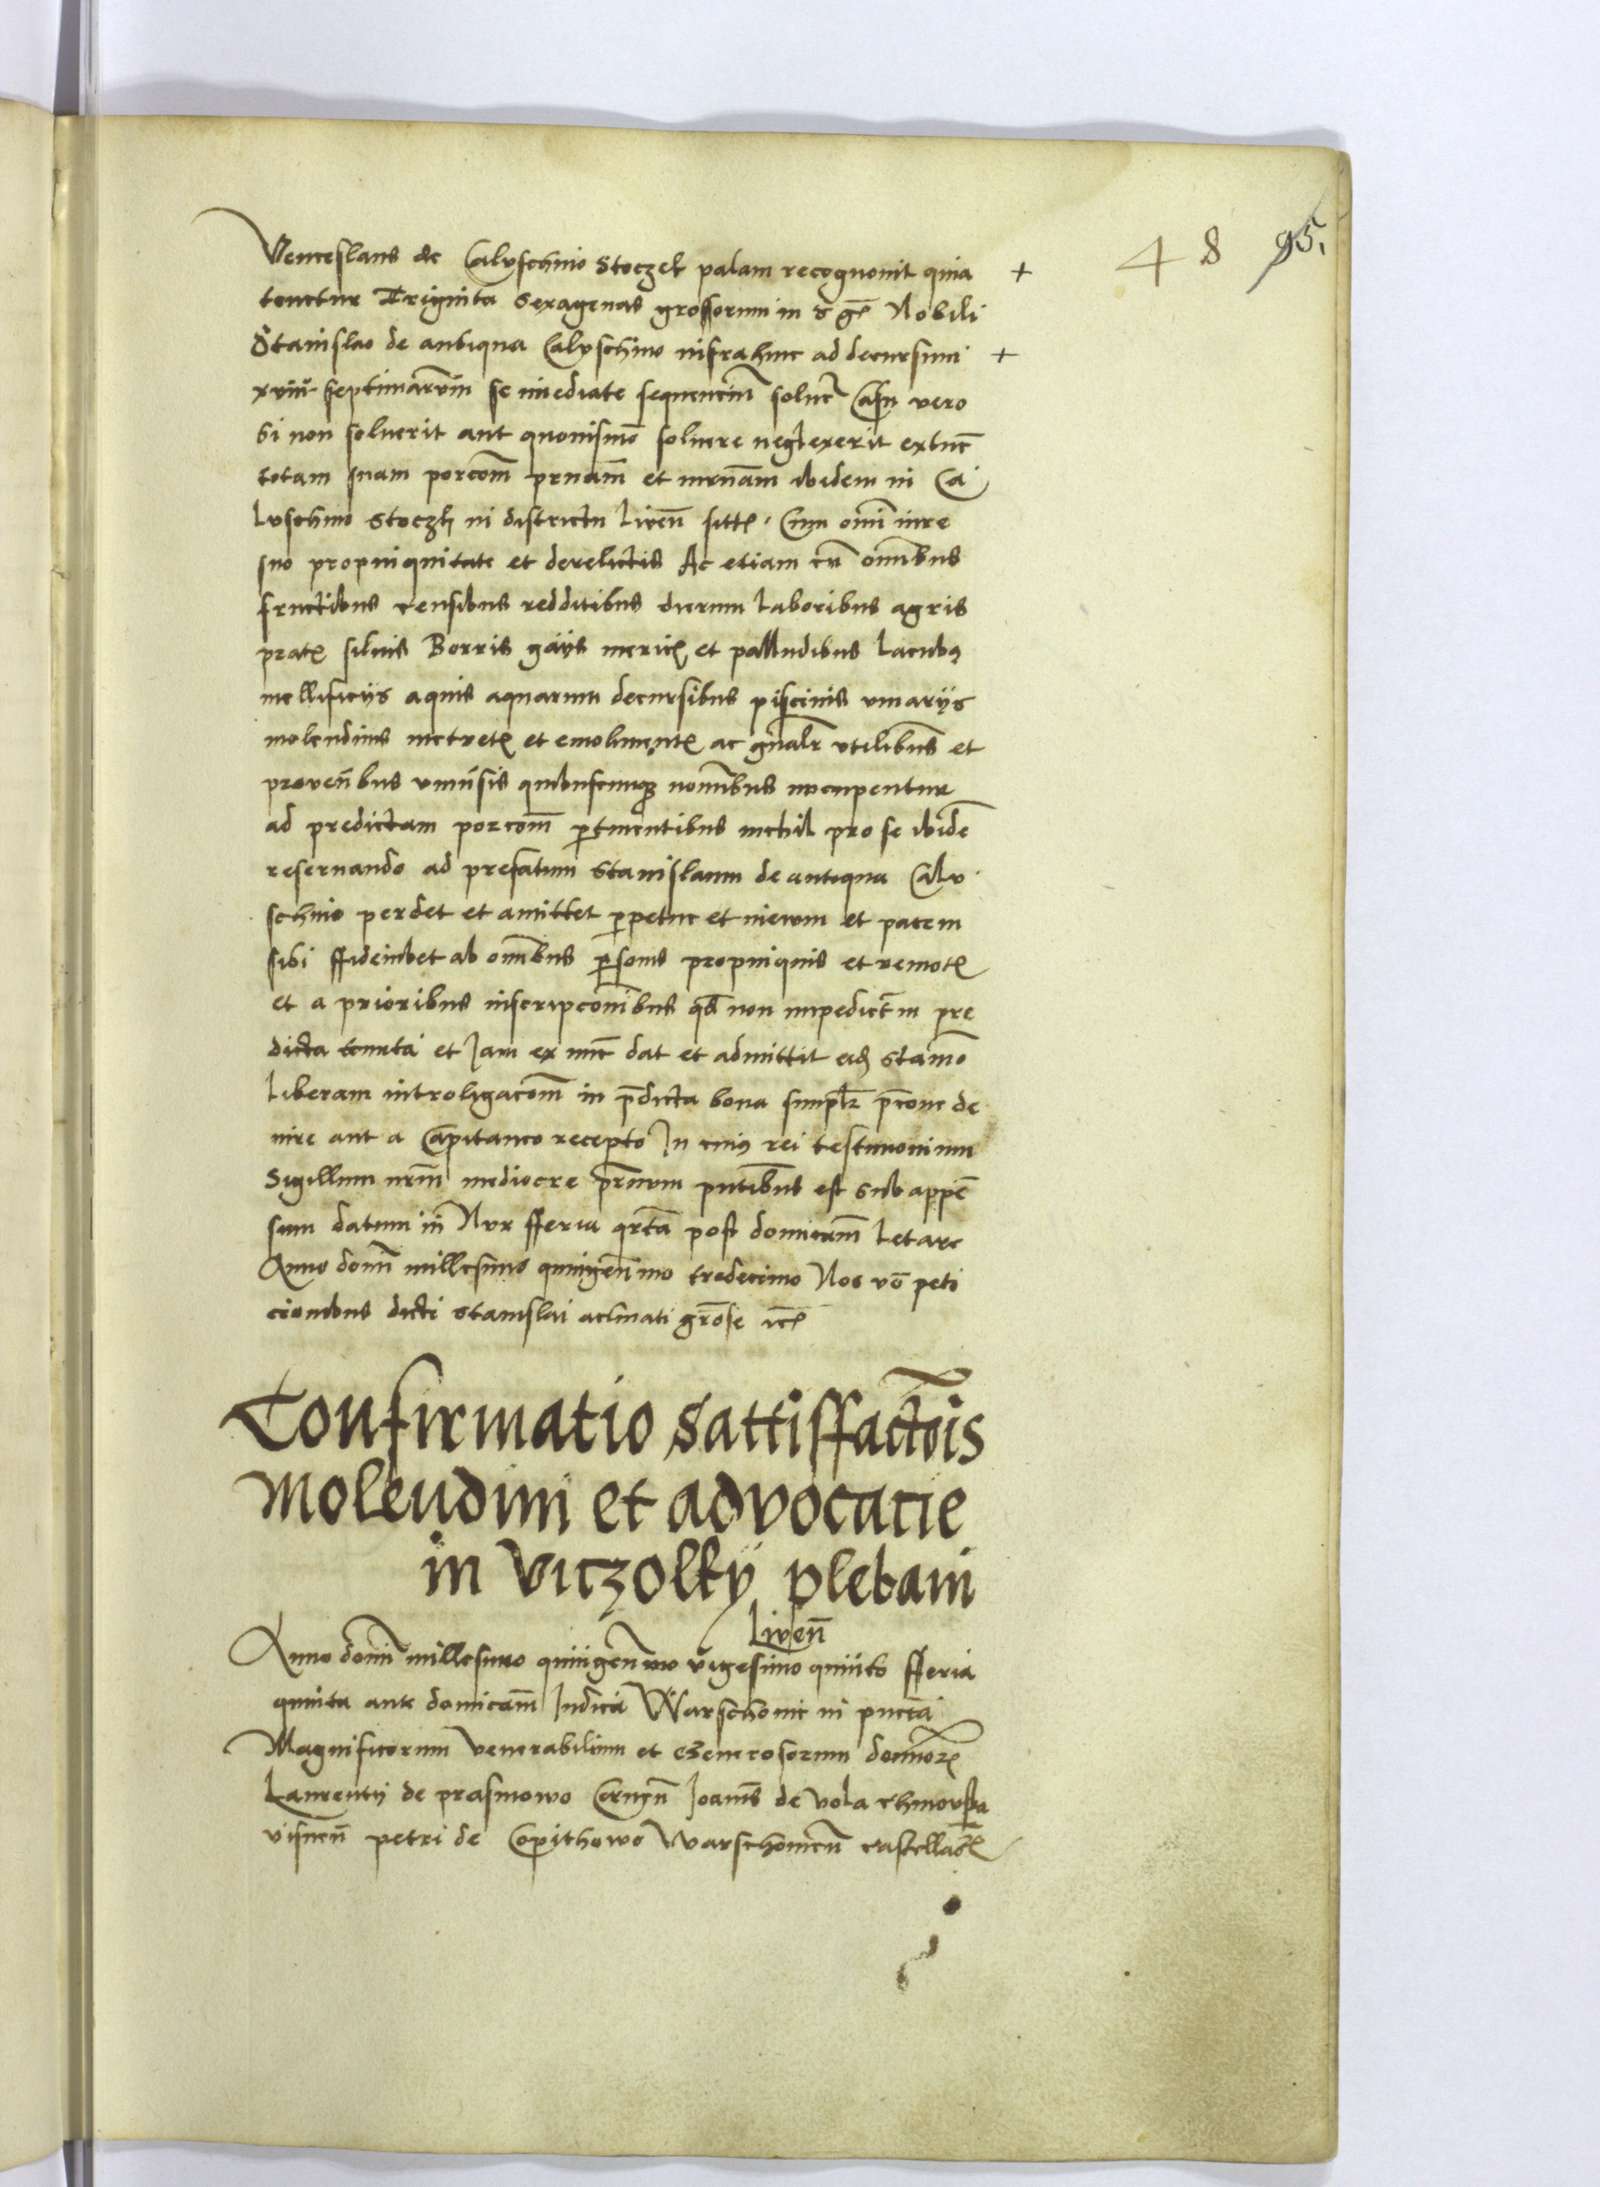 48 95.
Venceslaus de Calyschino Stoczek palam recognouit quia +
tenetur Triginta sexagenas grossorum in s gr Nobili
Stanislao de antiqua Calyschino infra hinc ad decursum +
xviii septimanarum se imediate sequencium soluet Casu vero
si non soluerit aut quouismo soluere neglexerit extunc
totam suam porcom prnam et mrnam ibidem in Ca
lyschino Stoczek in districtu Liven sitte. Cum omni iure
suo propinquitate et derelictis Ac etiam cu omnibus
fructibus censibus redditibus dierum laboribus agris
prate siluis Borris gays mericis et palludibus lacubus
mellificijs aquis aquarum decursibus piscinis viuarijs
molendinis metrete et emolimente ac gnalr vtilibus et
provenbus vniuersis quibuscumque nominibus nuncupentur
ad predictam porcom pertinentibus nichil pro se ibidem
reseruando ad prefatum Stanislaum de antiqua Caly
schino perdet et amittet perpetue et in ewm et pacem
sibi ffideiubet ab omnibus personis propinquis et remotis
et a prioribus inscripconibus quod non impedient in pre
dicta tenuta et Jam ex nunc dat et admittit eidem Stanislao
liberam introligacom in predicta bona simpliciter precone de
nire aut a Capitaneo recepto In cuius rei testimonium
Sigillum nrm mediocre prnum pntibus est subappen
sum datum in Nur fferia qrta post domicam letare
Anno domini millesimo quingenmo tredecimo Nos vo peti
cionibus dicti Stanislai aclinati grose etc
Confirmatio sattisffactois
Molendini et advocacie
in Viczolky plebani
Liven
Anno domini millesimo quingenmo vigesimo quinto fferia
quinta ante domicam Judica Warschouie in pncia
Magnificorum Venerabilium et Generosorum dominorum
Laurentij de Prasmowo Cernen Joannis de Vola chinowska
visnen petri de Copithowo Warschouien castellanorum